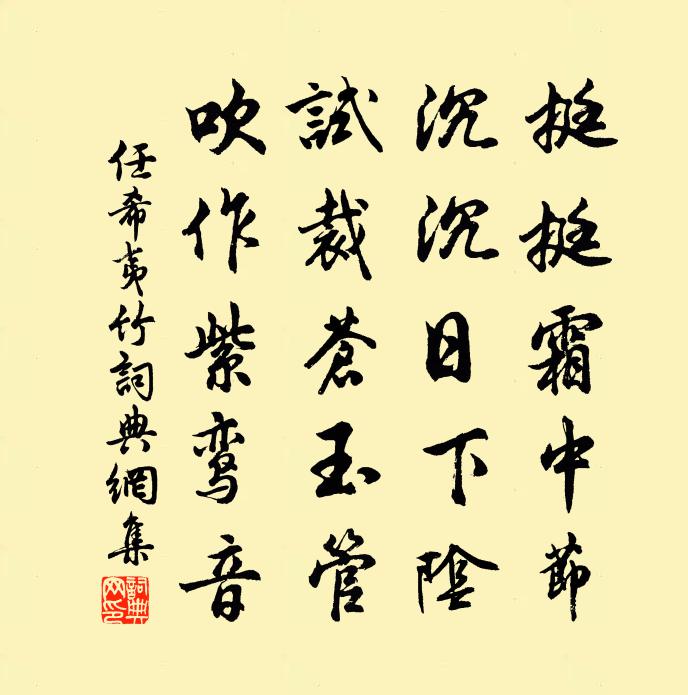 挺挺霜中節
沉沉日下陰
試裁蒼玉管
吹作紫鸾音
任希夷竹詞典網集
詞典網印